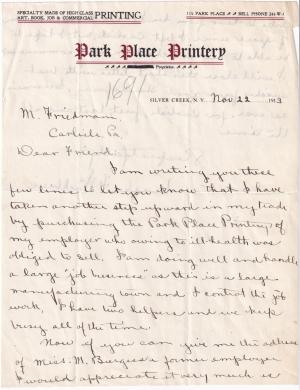 SPECIALTY MADE OF HIGH CLASS PRINTING
ART, BOOK, JOB & COMMERCIAL
112 PARK PLACE BELL PHONE 244-W
Park Place Printery
Proprietor.
169
SILVER CREEK, N. Y. Nov 22 1913
M. Friedman,
Carlisle, Pa
Dear Friend:
I am writing you these
few lines to let you know that I have
taken another step upward in my trade
by purchasing the Park Place Printery of
my employer who owing to ill health was
obliged to sell. I am doing well and handle
a large "job business" as this is a large
manufacturing town and I control the job
work. I have two helpers and we keep
busy all of the time.
Now if you can give me the address
of Miss. M. Burgess a former employer
I would appreciate it very much as